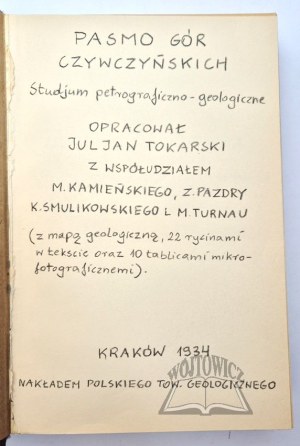 PASMO GÓR
CZYWCZYŃSKICH
Studjum petrograficzno-geologiczne
OPRACOWAŁ
JULJAN TOKARSKI
Z WSPÓŁUDZIAŁEM
M. KAMIEŃSKIEGO, Z. PAZDRY
K. SMULIKOWSKIEGO I M. TURNAU
(z mapą geologiczną, 22 rycinami
w tekscie oraz 10 tablicami mikro-
fotograficznemi).
KRAKÓW 1934
WÓJTOWICZ
NAKŁADEM POLSKIEGO TOW. GEOLOGICZNEGO